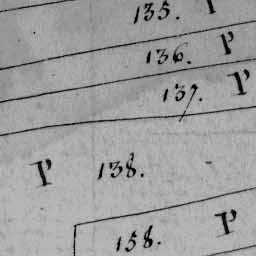 135. P
136. P
137. P
P 138.
158. P